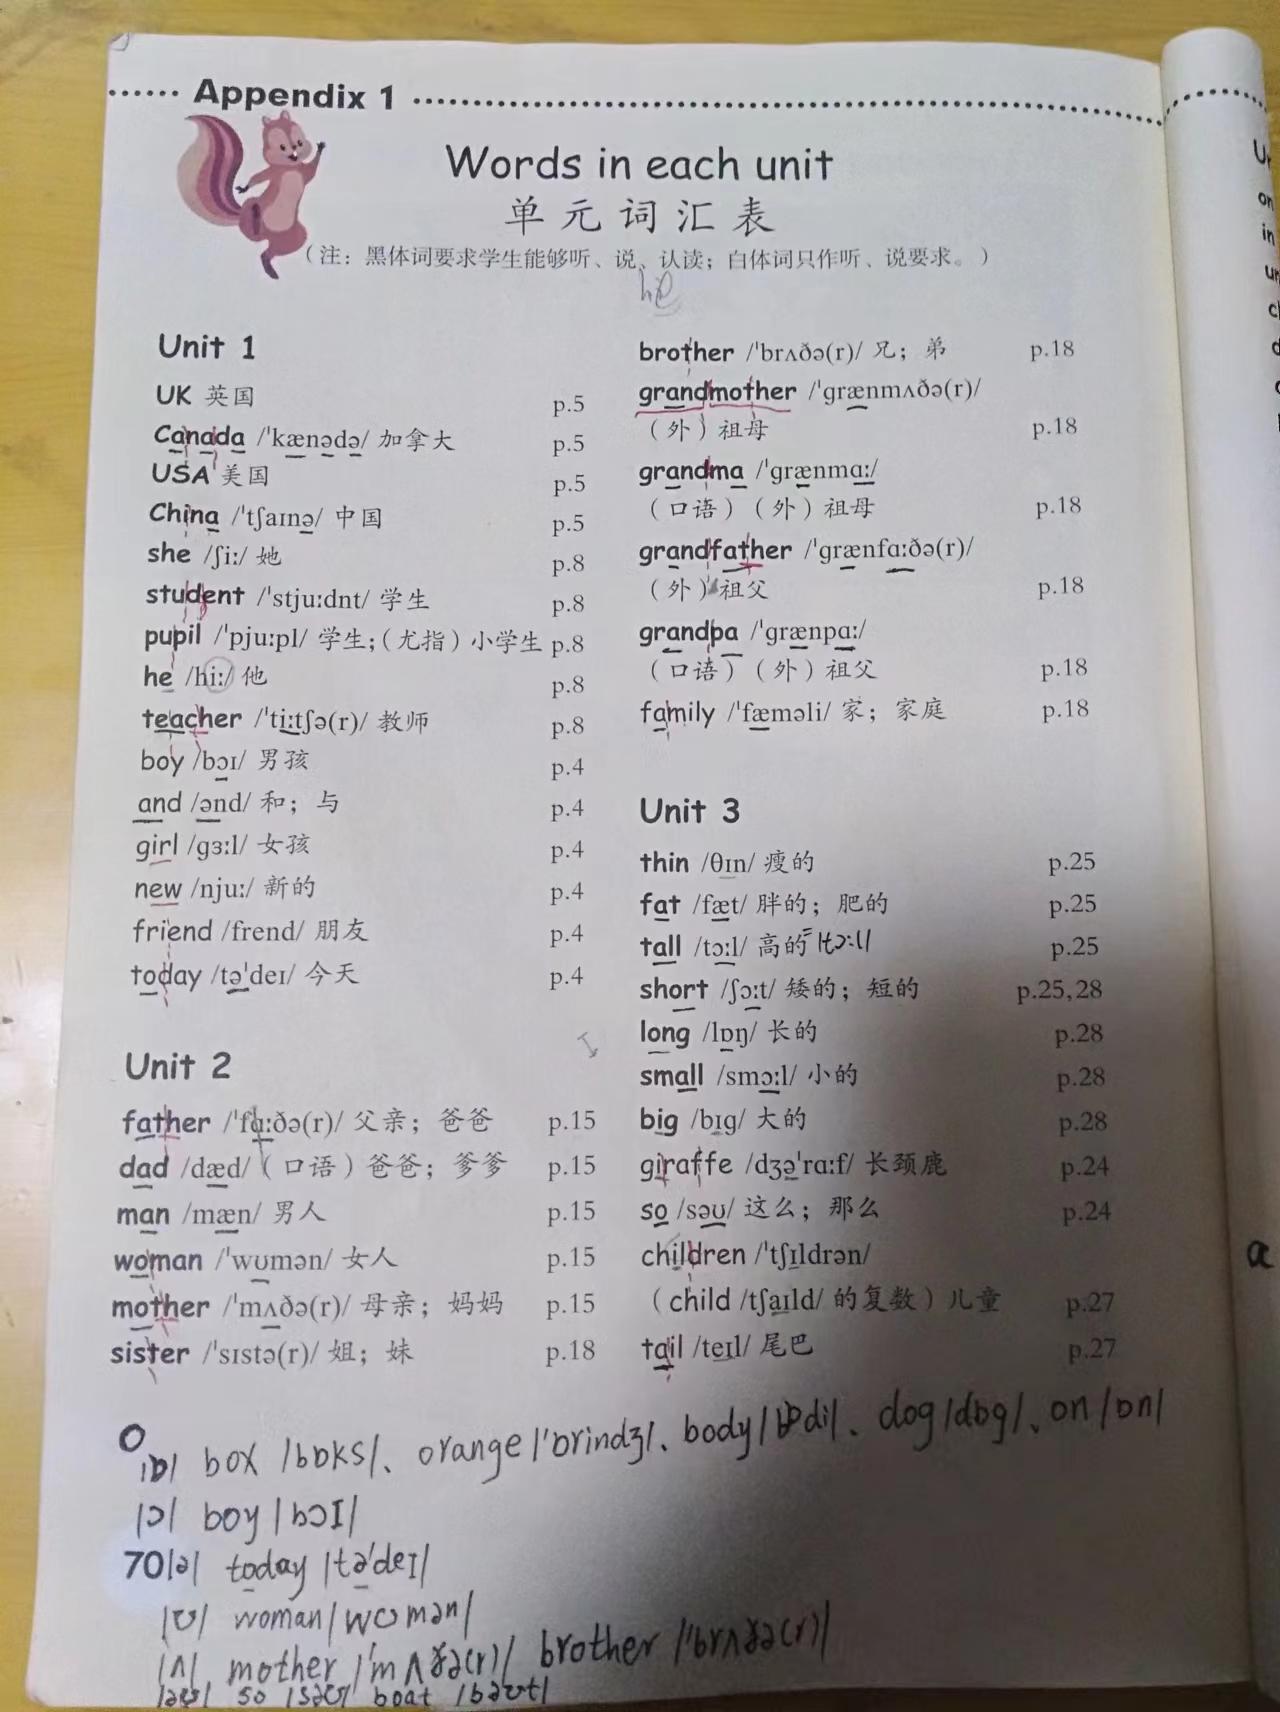 Appendix 1
Words in each unit
单元词汇表
（注：黑体词要求学生能够听、说、认读；白体词只作听、说要求。）
he
Unit 1
UK 英国 p.5
Canada /ˈkænədə/ 加拿大 p.5
USA 美国 p.5
China /ˈtʃaɪnə/ 中国 p.5
she /ʃiː/ 她 p.8
student /ˈstjuːdnt/ 学生 p.8
pupil /ˈpjuːpl/ 学生；（尤指）小学生 p.8
he /hiː/ 他 p.8
teacher /ˈtiːtʃə(r)/ 教师 p.8
boy /bɔɪ/ 男孩 p.4
and /ənd/ 和；与 p.4
girl /ɡɜːl/ 女孩 p.4
new /njuː/ 新的 p.4
friend /frend/ 朋友 p.4
today /təˈdeɪ/ 今天 p.4
Unit 2
father /ˈfɑːðə(r)/ 父亲；爸爸 p.15
dad /dæd/（口语）爸爸；爹爹 p.15
man /mæn/ 男人 p.15
woman /ˈwʊmən/ 女人 p.15
mother /ˈmʌðə(r)/ 母亲；妈妈 p.15
sister /ˈsɪstə(r)/ 姐；妹 p.18
brother /ˈbrʌðə(r)/ 兄；弟 p.18
grandmother /ˈɡrænmʌðə(r)/
（外）祖母 p.18
grandma /ˈɡrænmɑː/
（口语）（外）祖母 p.18
grandfather /ˈɡrænfɑːðə(r)/
（外）祖父 p.18
grandpa /ˈɡrænpɑː/
（口语）（外）祖父 p.18
family /ˈfæməli/ 家；家庭 p.18
Unit 3
thin /θɪn/ 瘦的 p.25
fat /fæt/ 胖的；肥的 p.25
tall /tɔːl/ 高的 /tɔːl/ p.25
short /ʃɔːt/ 矮的；短的 p.25,28
long /lɒŋ/ 长的 p.28
small /smɔːl/ 小的 p.28
big /bɪɡ/ 大的 p.28
giraffe /dʒəˈrɑːf/ 长颈鹿 p.24
so /səʊ/ 这么；那么 p.24
children /ˈtʃɪldrən/
（child /tʃaɪld/ 的复数）儿童 p.27
tail /teɪl/ 尾巴 p.27
O
/ɒ/ box /bɒks/、orange /ˈɒrindʒ/、body /bɒdi/、dog /dɒg/、on /ɒn/
/ɔ/ boy /bɔɪ/
70
/ə/ today /təˈdeɪ/
/ʊ/ woman /wʊmən/
/ʌ/ mother /ˈmʌðə(r)/ brother /ˈbrʌðə(r)/
/əʊ/ so /səʊ/ boat /bəʊt/